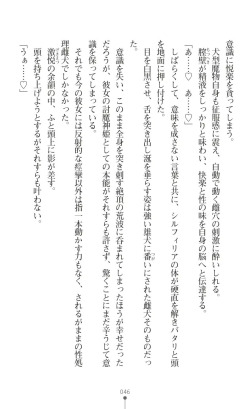 意識に悦楽を貪ってしまう。
犬型魔物自身も征服感に震え、自動で動く雌穴の刺激に酔いしれる。
膣壁が精液をしっかりと味わい、快楽と性の味を自身の脳へと伝達する。
「あ……♡　あ……♡」
しばらくして、意味を成さない言葉と共に、シルフィリアの体が硬直を解きパタリと頭
を地面に押し付けた。
目を白黒させ、舌を突き出し涎を垂らす姿は強い雄犬に番いにされた雌犬そのものだっ
た。
意識を失い、このまま全身を突き刺す絶頂の荒波に呑まれてしまったほうが幸せだった
だろうが、彼女の討魔神姫としての本能がそれすらも許さず、驚くことにまだ辛うじて意
識を保ってしまっている。
それでも今の彼女には反射的な痙攣以外は指一本動かす力もなく、されるがままの性処
理雌犬でしかなかった。
激悦の余韻の中、ふと頭上に影が差す。
頭を持ち上げようとするがそれすらも叶わない。
「うぁ……♡」
046